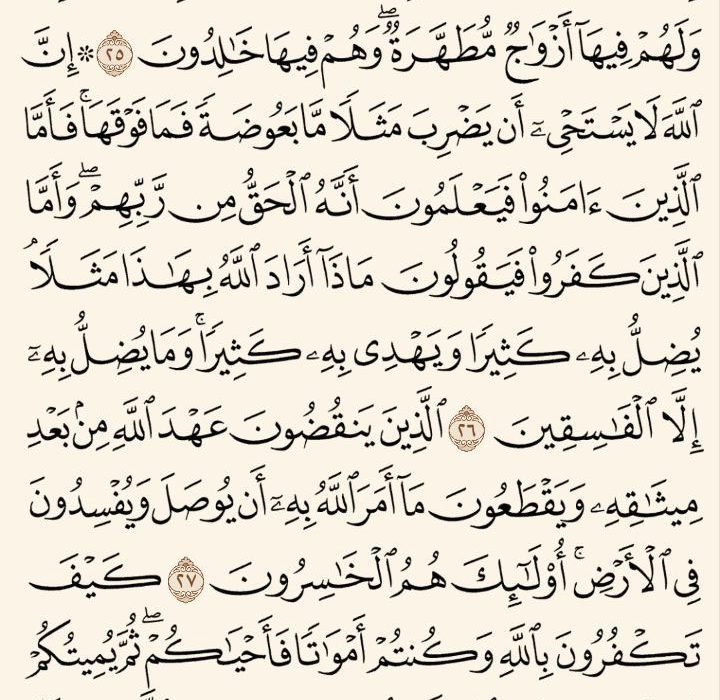 وَلَهُمْ فِيهَآ أَزْوَٰجٌ مُّطَهَّرَةٌ ۖ وَهُمْ فِيهَا خَٰلِدُونَ ٢٥ ۞ إِنَّ
ٱللَّهَ لَا يَسْتَحْىِۦٓ أَن يَضْرِبَ مَثَلًا مَّا بَعُوضَةً فَمَا فَوْقَهَا ۚ فَأَمَّا
ٱلَّذِينَ ءَامَنُوا۟ فَيَعْلَمُونَ أَنَّهُ ٱلْحَقُّ مِن رَّبِّهِمْ ۖ وَأَمَّا
ٱلَّذِينَ كَفَرُوا۟ فَيَقُولُونَ مَاذَآ أَرَادَ ٱللَّهُ بِهَٰذَا مَثَلًا ۘ
يُضِلُّ بِهِۦ كَثِيرًا وَيَهْدِى بِهِۦ كَثِيرًا ۚ وَمَا يُضِلُّ بِهِۦٓ
إِلَّا ٱلْفَٰسِقِينَ ٢٦ ٱلَّذِينَ يَنقُضُونَ عَهْدَ ٱللَّهِ مِنۢ بَعْدِ
مِيثَٰقِهِۦ وَيَقْطَعُونَ مَآ أَمَرَ ٱللَّهُ بِهِۦٓ أَن يُوصَلَ وَيُفْسِدُونَ
فِى ٱلْأَرْضِ ۚ أُو۟لَٰٓئِكَ هُمُ ٱلْخَٰسِرُونَ ٢٧ كَيْفَ
تَكْفُرُونَ بِٱللَّهِ وَكُنتُمْ أَمْوَٰتًا فَأَحْيَٰكُمْ ۖ ثُمَّ يُمِيتُكُمْ